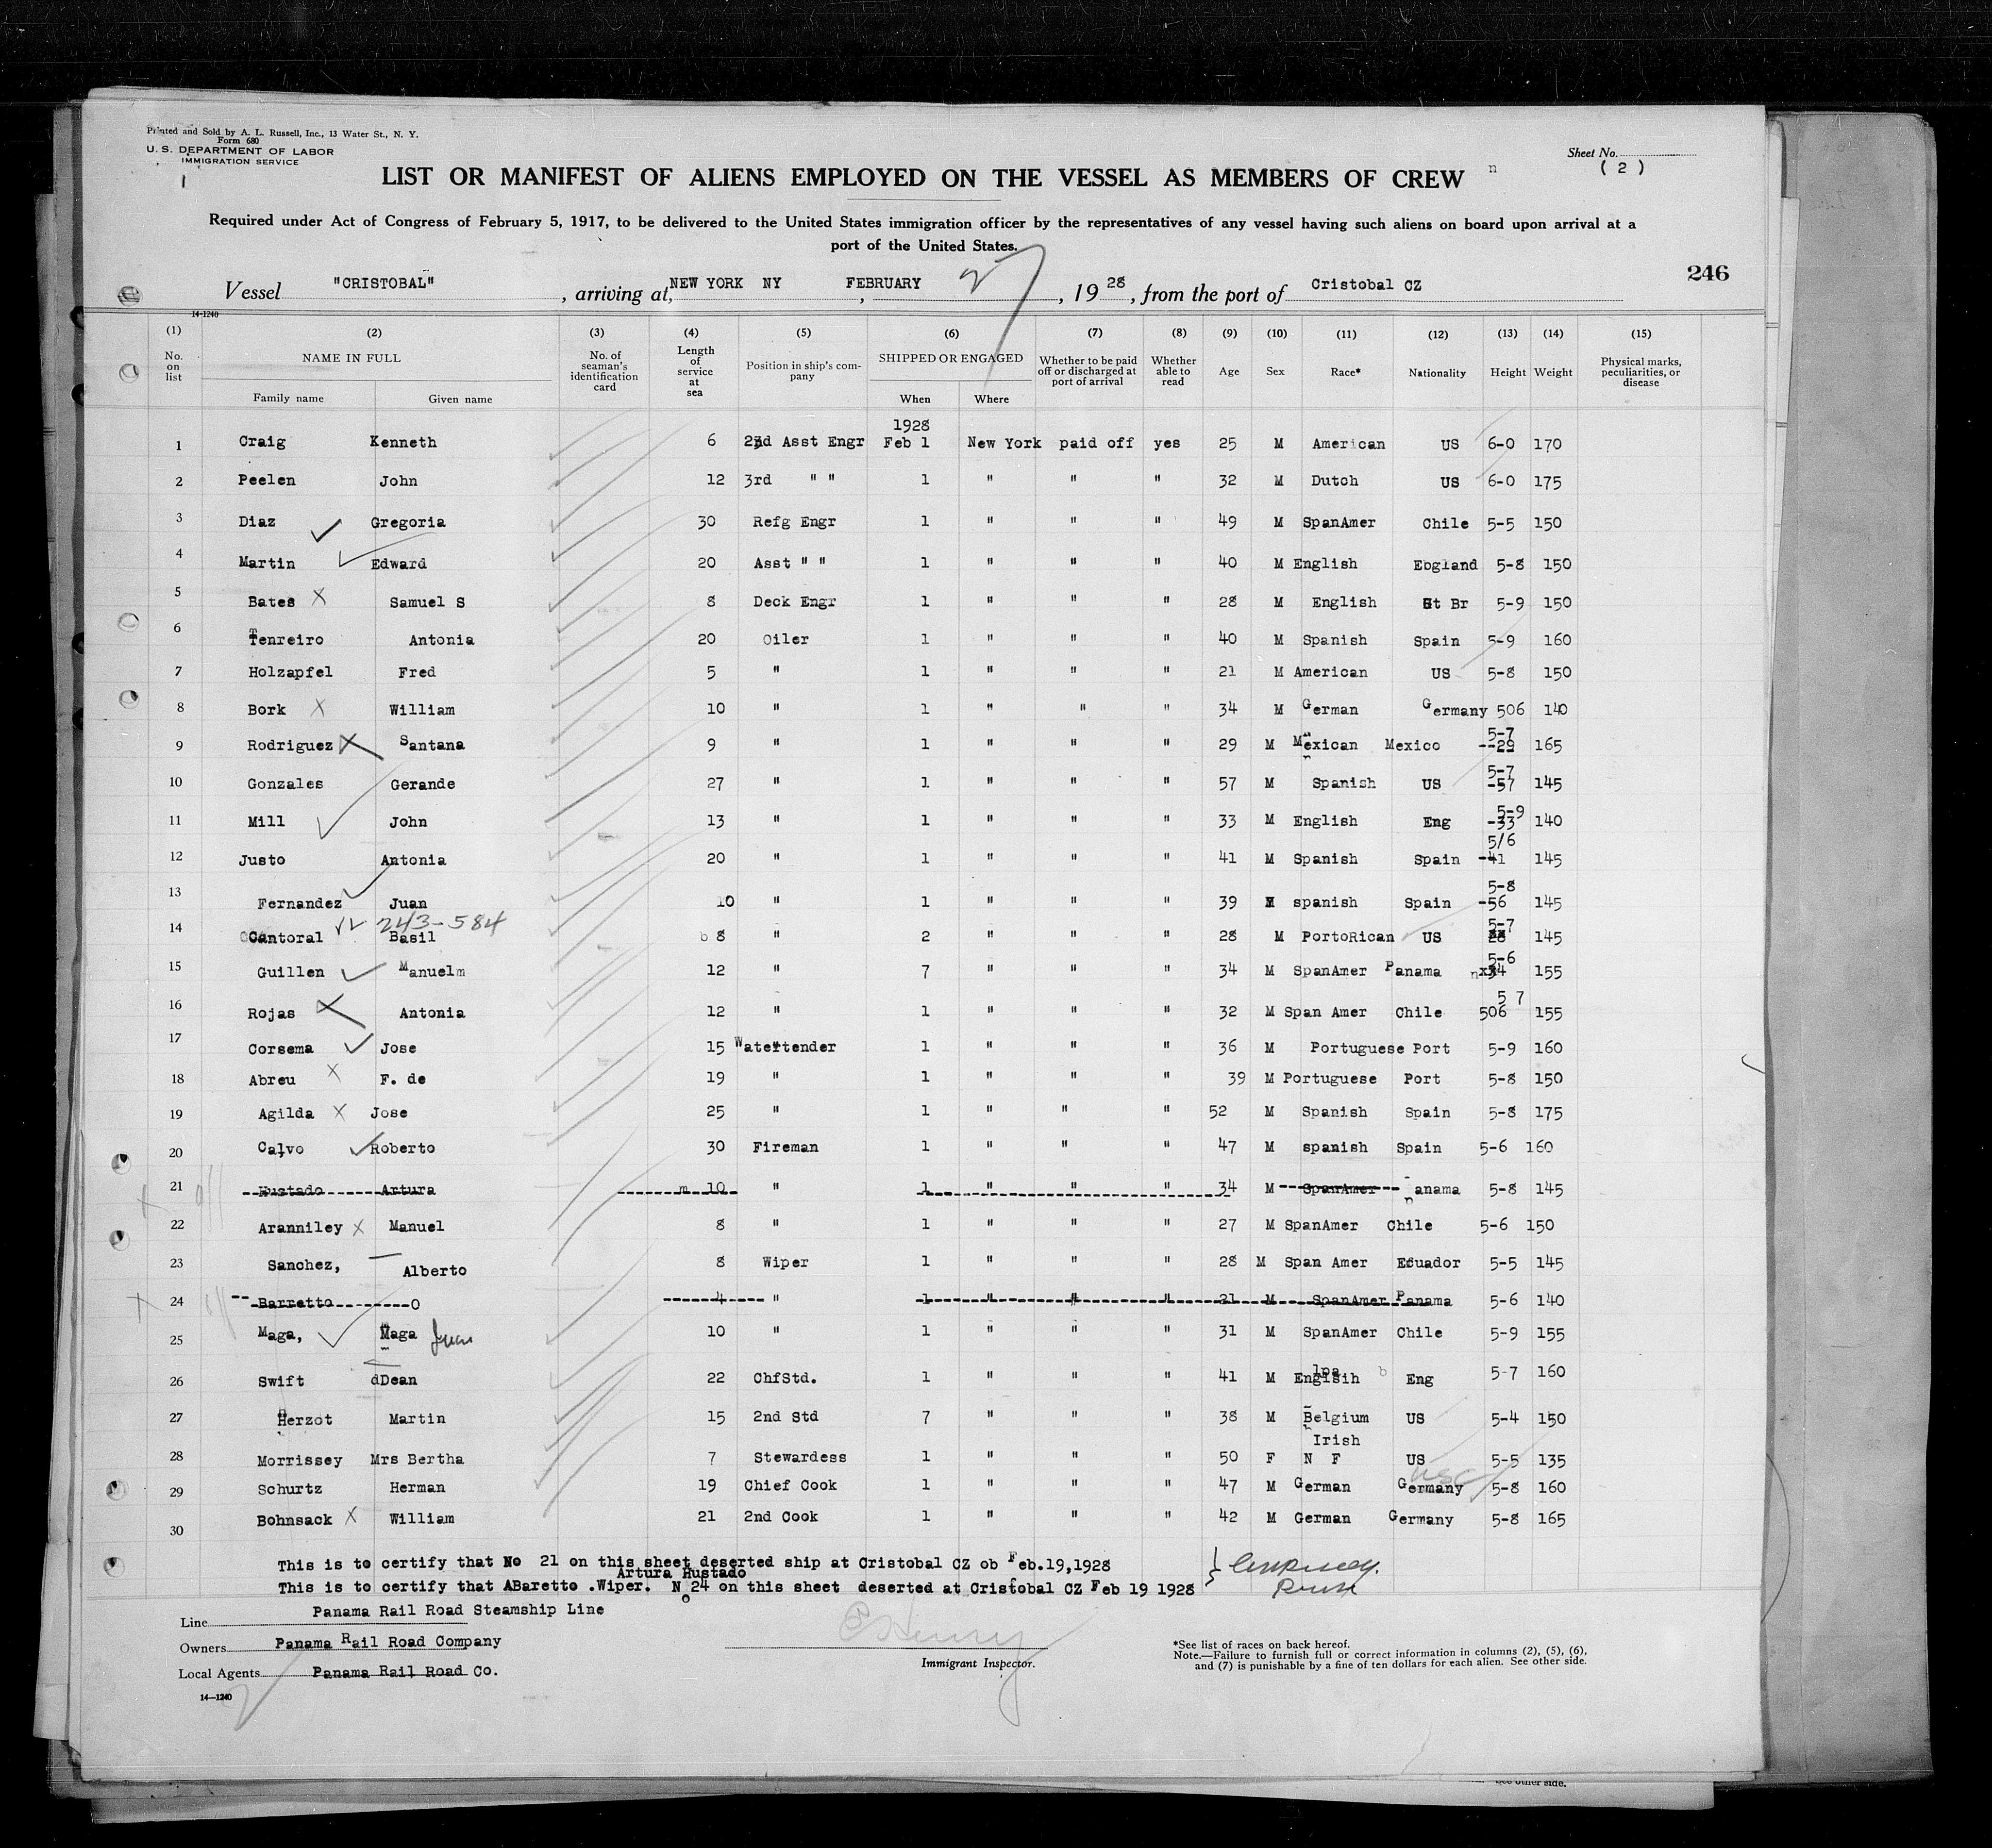 Printed and Sold by A. L. Russell, Inc., 13 Water St., N. Y.
Form 680
U. S. DEPARTMENT OF LABOR
IMMIGRATION SERVICE
1
Sheet No.
( 2 )
LIST OR MANIFEST OF ALIENS EMPLOYED ON THE VESSEL AS MEMBERS OF CREW
Required under Act of Congress of February 5, 1917, to be delivered to the United States immigration officer by the representatives of any vessel having such aliens on board upon arrival at a
port of the United States.
246
Vessel "CRISTOBAL", arriving at, NEW YORK NY FEBRUARY 27, 1928, from the port of Cristobal CZ
14-1240
(1) (2) (3) (4) (5) (6) (7) (8) (9) (10) (11) (12) (13) (14) (15)
No. on list NAME IN FULL Family name Given name No. of seaman's identification card Length of service at sea Position in ship's company SHIPPED OR ENGAGED When Where Whether to be paid off or discharged at port of arrival Whether able to read Age Sex Race* Nationality Height Weight Physical marks, peculiarities, or disease
1928
1 Craig Kenneth 6 2nd Asst Engr Feb 1 New York paid off yes 25 M American US 6-0 170
2 Peelen John 12 3rd " " 1 " " " 32 M Dutch US 6-0 175
3 Diaz Gregoria 30 Refg Engr 1 " " " 49 M SpanAmer Chile 5-5 150
4 Martin Edward 20 Asst " " 1 " " " 40 M English Ebgland 5-8 150
5 Bates Samuel S 8 Deck Engr 1 " " " 28 M English Gt Br 5-9 150
6 Tenreiro Antonia 20 Oiler 1 " " " 40 M Spanish Spain 5-9 160
7 Holzapfel Fred 5 " 1 " " " 21 M American US 5-8 150
8 Bork William 10 " 1 " " " 34 M German Germany 506 140
9 Rodriguez Santana 9 " 1 " " " 29 M Mexican Mexico 5-7 --29 165
10 Gonzales Gerande 27 " 1 " " " 57 M Spanish US 5-7 -57 145
11 Mill John 13 " 1 " " " 33 M English Eng 5-9 -33 140
12 Justo Antonia 20 " 1 " " " 41 M Spanish Spain 5/6 -41 145
13 Fernandez Juan 10 " 1 " " " 39 M spanish Spain 5-8 -56 145
243-584
14 Cantoral Basil 8 " 2 " " " 28 M PortoRican US 5-7 28 145
15 Guillen Manuelm 12 " 7 " " " 34 M SpanAmer Panama 5-6 34 155
16 Rojas Antonia 12 " 1 " " " 32 M Span Amer Chile 5 7 506 155
17 Corsema Jose 15 Watertender 1 " " " 36 M Portuguese Port 5-9 160
18 Abreu F. de 19 " 1 " " " 39 M Portuguese Port 5-8 150
19 Agilda Jose 25 " 1 " " " 52 M Spanish Spain 5-8 175
20 Calvo Roberto 30 Fireman 1 " " " 47 M spanish Spain 5-6 160
21 Hustado Artura 10 " 1 " " " 34 M SpanAmer Panama 5-8 145
22 Aranniley Manuel 8 " 1 " " " 27 M SpanAmer Chile 5-6 150
23 Sanchez, Alberto 8 Wiper 1 " " " 28 M Span Amer Ecuador 5-5 145
24 Barretto O 4 " 1 " " " 21 M SpanAmer Panama 5-6 140
25 Maga, Maga Juan 10 " 1 " " " 31 M SpanAmer Chile 5-9 155
26 Swift dDean 22 ChfStd. 1 " " " 41 M Englsih Eng 5-7 160
27 Herzot Martin 15 2nd Std 7 " " " 38 M Belgium US 5-4 150
28 Morrissey Mrs Bertha 7 Stewardess 1 " " " 50 F Irish N F US 5-5 135
29 Schurtz Herman 19 Chief Cook 1 " " " 47 M German Germany USC 5-8 160
30 Bohnsack William 21 2nd Cook 1 " " " 42 M German Germany 5-8 165
This is to certify that No 21 on this sheet deserted ship at Cristobal CZ ob Feb.19,1928
Artura Hustado
This is to certify that ABaretto .Wiper. No 24 on this sheet deserted at Cristobal CZ Feb 19 1928
Line Panama Rail Road Steamship Line
Owners Panama Rail Road Company
Local Agents Panama Rail Road Co.
14—1240
Immigrant Inspector.
*See list of races on back hereof.
Note.—Failure to furnish full or correct information in columns (2), (5), (6),
and (7) is punishable by a fine of ten dollars for each alien. See other side.
See other side.